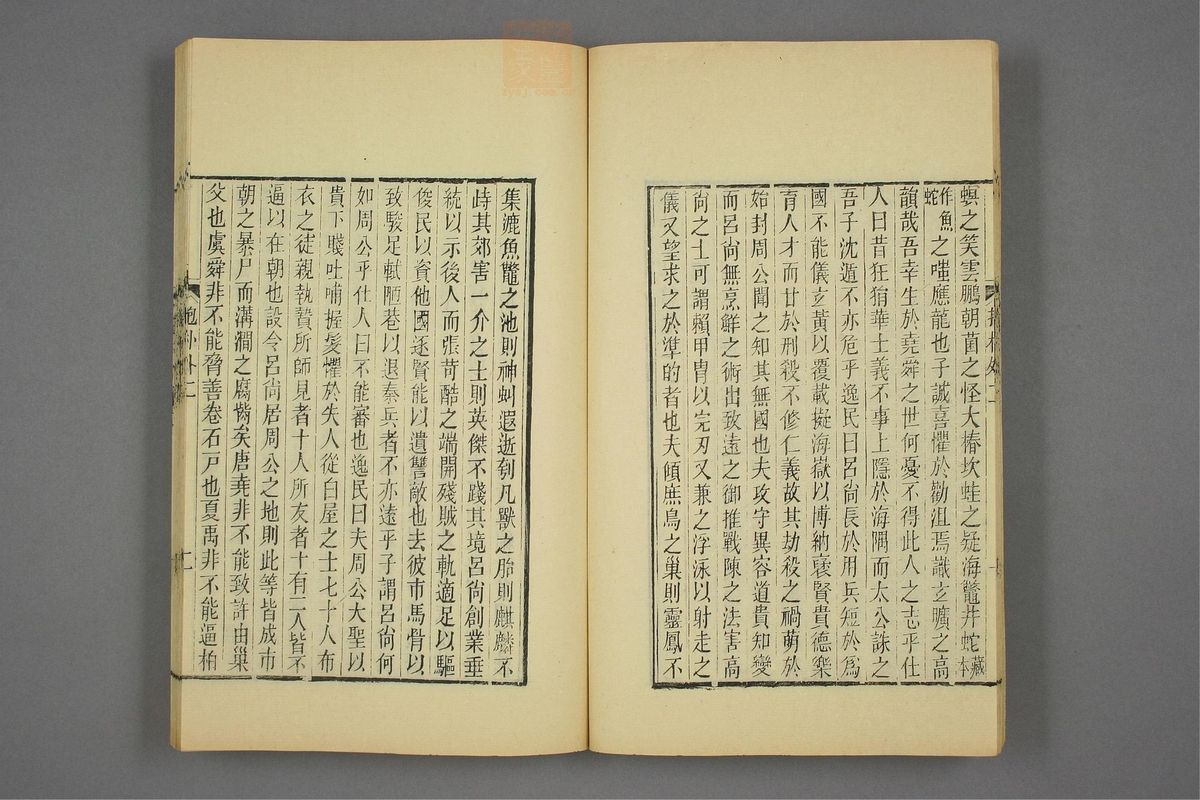 螟之笑雲鵬朝菌之怪大椿坎蛙之疑海鼈井蛇藏本
作魚蛇之嗤應龍也子誠喜懼於勸沮焉識玄曠之高
韻哉吾幸生於堯舜之世何憂不得此人之志乎仕
人曰昔狂狷華士義不事上隱於海隅而太公誅之
吾子沈遁不亦危乎逸民曰呂尙長於用兵短於爲
國不能儀玄黃以覆載擬海嶽以博納褒賢貴德樂
育人才而甘於刑殺不修仁義故其劫殺之禍萌於
始封周公聞之知其無國也夫攻守異容道貴知變
而呂尙無烹鮮之術出致遠之御推戰陳之法害高
尙之士可謂賴甲冑以完刃又兼之浮泳以射走之
儀又望求之於準的者也夫傾庶鳥之巢則靈鳳不
抱朴外二
集漉魚鼈之池則神虯遐逝刳凡獸之胎則麒麟不
跱其郊害一介之士則英傑不踐其境呂尙創業垂
統以示後人而張苛酷之端開殘賊之軌適足以驅
俊民以資他國逐賢能以遺讐敵也去彼市馬骨以
致駿足軾陋巷以退秦兵者不亦遠乎子謂呂尙何
如周公乎仕人曰不能審也逸民曰夫周公大聖以
貴下賤吐哺握髮懼於失人從白屋之士七十人布
衣之徒親執贄所師見者十人所友者十有二人皆不
逼以在朝也設令呂尙居周公之地則此等皆成市
朝之暴尸而溝澗之腐胔矣唐堯非不能致許由巢
父也虞舜非不能脅善卷石戸也夏禹非不能逼柏
抱朴外二